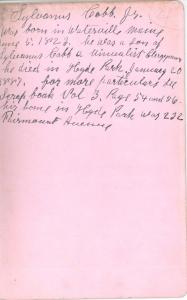 Sylvanus Cobb Jr.
was born in Waterville Maine
June 5. 1823. he was a son of
Sylvanus Cobb a Universalist Clergyman
he died in Hyde Park January 20
1887. for more particulars see
scrap book Vol 3, Page 54 and 86.
his home in Hyde Park was 232
Fairmount Avenue